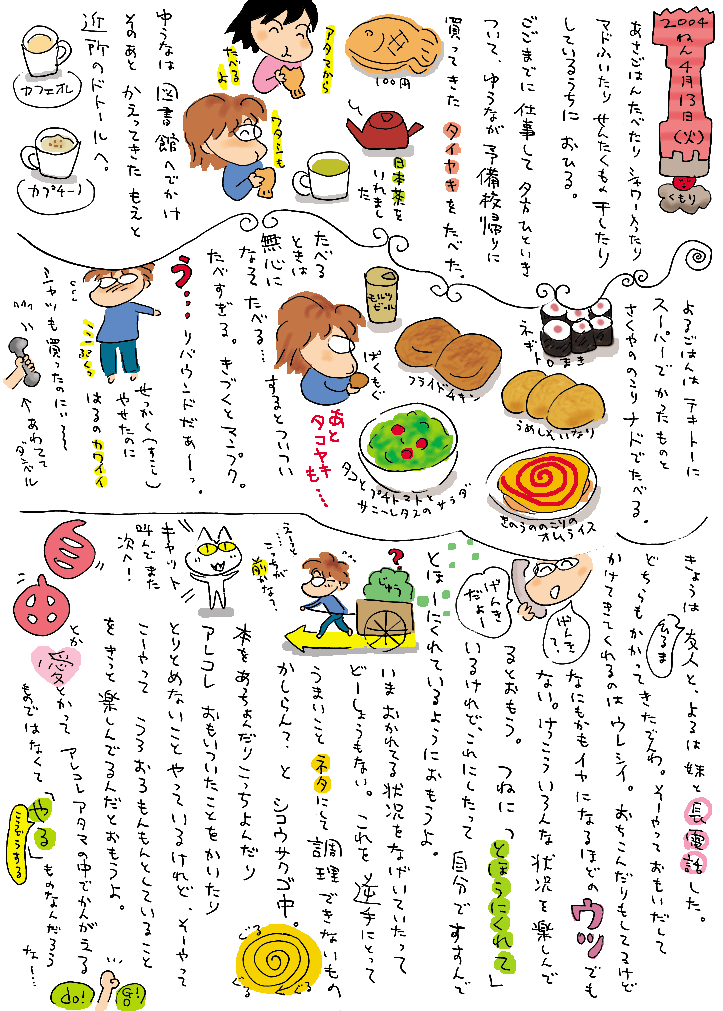 2004ねん4月13日(火)
くもり
あさごはんたべたり シャワー入ったり
マドふいたり せんたくもの干したり
しているうちに おひる。
ごごまでに 仕事して 夕方ひといき
ついて、ゆうなが 予備校帰りに
買ってきた タイヤキ をたべた。
100円
日本茶を
いれました
アタマから
たべるよ
ワタシも
ゆうなは 図書館へでかけ
そのあと かえってきた もえと
近所のドトールへ。
カフェオレ
カプチーノ
よるごはんは テキトーに
スーパーで かったものと
さくやののこり ナドでたべる。
ネギトロまき
うめしそいなり
きのうののこりの
オムライス
フライドチキン
タコとプチトマトと
サニーレタスのサラダ
モルツ
ビール
ぱくもぐ
あと
タコヤキ
も…
たべる
ときは
無心に
なって たべる… するとついつい
たべすぎる。きづくとマンプク。
う… リバウンドだぁーっ。
せっかく(すこし)
やせたのに
はるのカワイイ
シャツも買ったのにい〜〜
←あわてて
ダンベル
きょうは 友人と、よるは 妹と 長電話した。
ひるま
どちらもかかってきたでんわ。そーやっておもいだして
かけてきてくれるのは ウレシイ。おちこんだりもしてるけど
なにもかもイヤになるほどの ウツ でも
ない。けっこういろんな 状況を 楽しんで
るとおもう。つねに「とほうにくれて」
いるけれど、これにしたって 自分ですすんで
とほーにくれているようにおもうよ。
げんき
?
げんき
だよー
いま おかれてる 状況をなげいていたって
どーしょうもない。これを 逆手にとって
うまいこと ネタにして 調理できないもの
かしらん? と シコウサクゴ中。
?
じゅう
えーと
こっちが
前かな?
ぐる
ぐる
ぐる
本をあっちよんだりこっちよんだり
アレコレ おもいついたことをかいたり
とりとめないこと やっているけれど、そーやって
こーやって うろおろもんもんとしていること
をきっと楽しんでるんだとおもうよ。
キャット
叫んでまた
次へ!
とか 愛とかって アレコレ アタマの中でかんがえる
ものではなくて「やる」ものなんだろう
こうどうする
なー…
do!
GO!